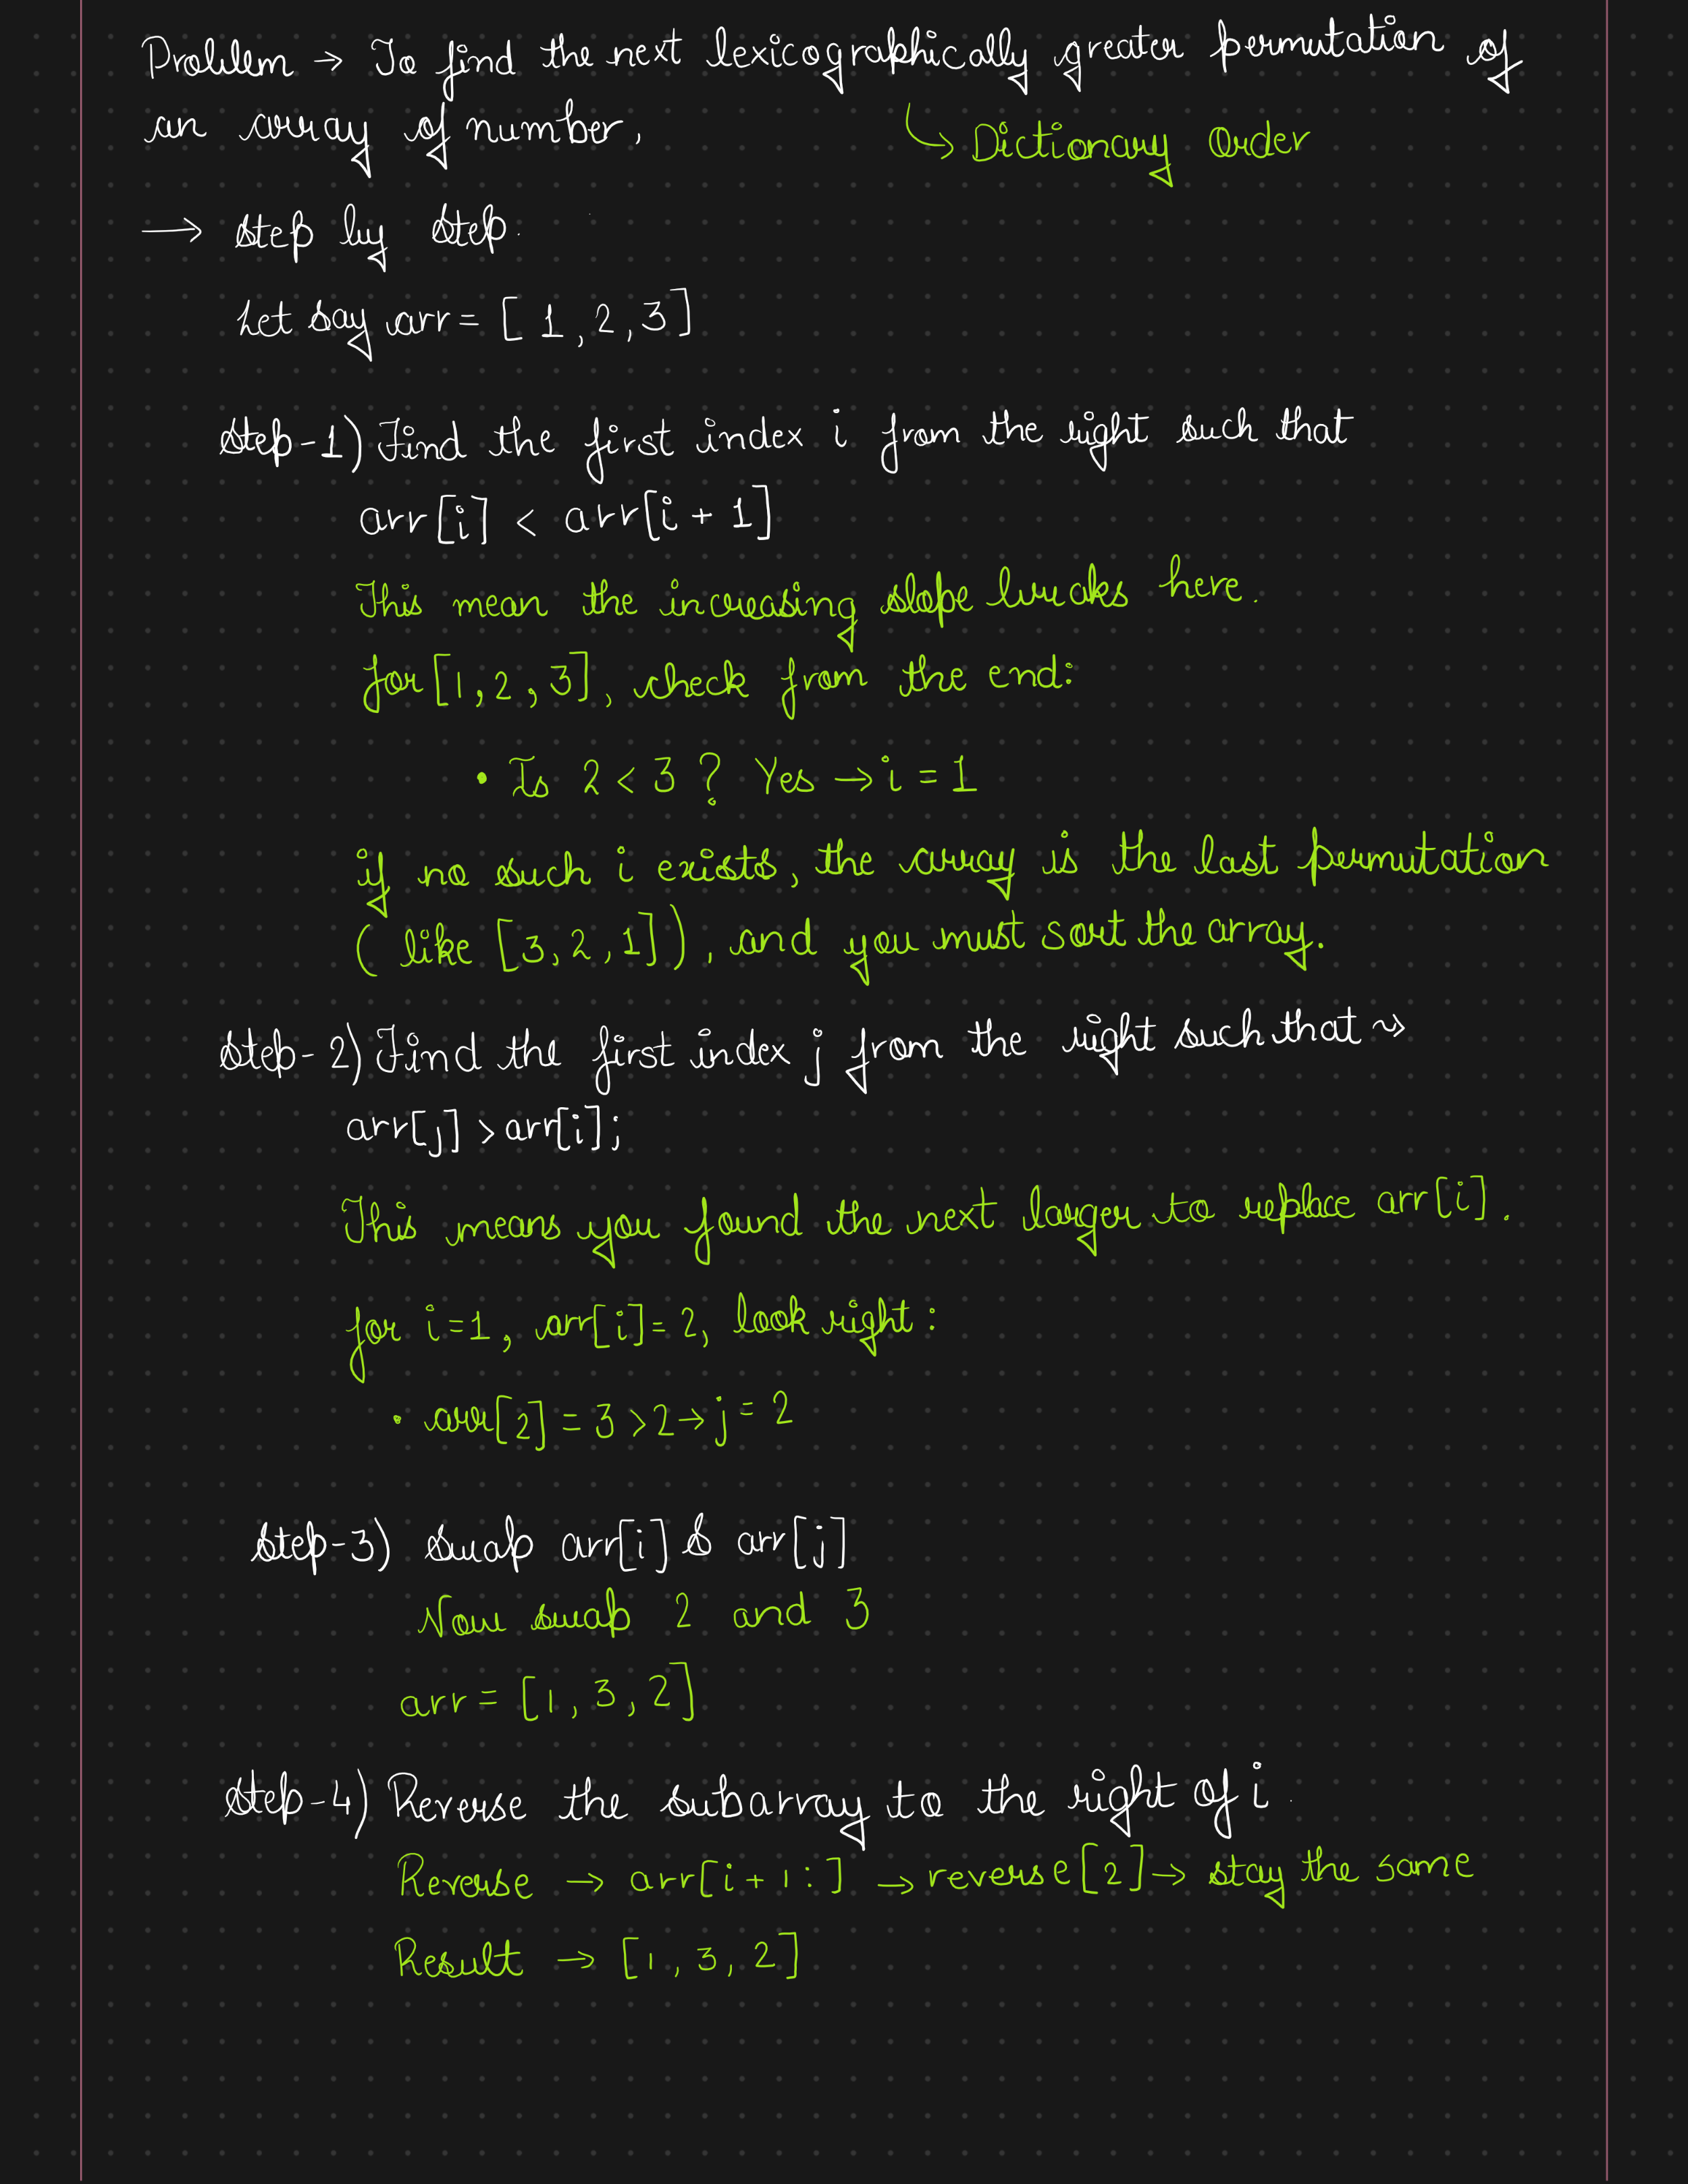 Problem → To find the next lexicographically greater permutation of
an array of number.
↳ Dictionary Order
→ Step by Step.
Let say arr = [ 1, 2, 3]
Step-1) Find the first index i from the right such that
arr[i] < arr[i + 1]
This mean the increasing slope breaks here.
for [1, 2, 3], check from the end:
• Is 2 < 3 ? Yes → i = 1
if no such i exists, the array is the last permutation
( like [3, 2, 1]), and you must sort the array.
Step-2) Find the first index j from the right such that ⤳
arr[j] > arr[i];
This means you found the next larger to replace arr[i].
for i=1, arr[i]= 2, look right:
• arr[2] = 3 > 2 → j = 2
Step-3) Swap arr[i] & arr[j]
Now swap 2 and 3
arr = [1, 3, 2]
Step-4) Reverse the subarray to the right of i.
Reverse → arr[i + 1:] → reverse[2] → stay the same
Result → [1, 3, 2]